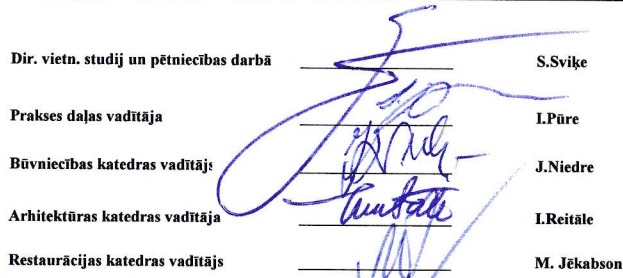 Dir. vietn. studij un pētniecības darbā S.Sviķe
Prakses daļas vadītāja I.Pūre
Būvniecības katedras vadītājs J.Niedre
Arhitektūras katedras vadītāja I.Reitāle
Restaurācijas katedras vadītājs M. Jēkabson